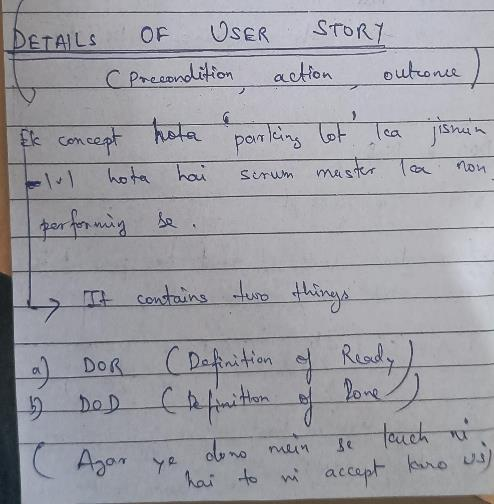 DETAILS OF USER STORY
(Precondition, action, outcome)
Ek concept hota 'parking lot' ka jismin
1v1 hota hai scrum master ka non
performing se.
It contains two things
a) DOR (Definition of Ready)
b) DOD (Definition of Done)
(Agar ye dono mein se kuch ni
hai to ni accept karo us)